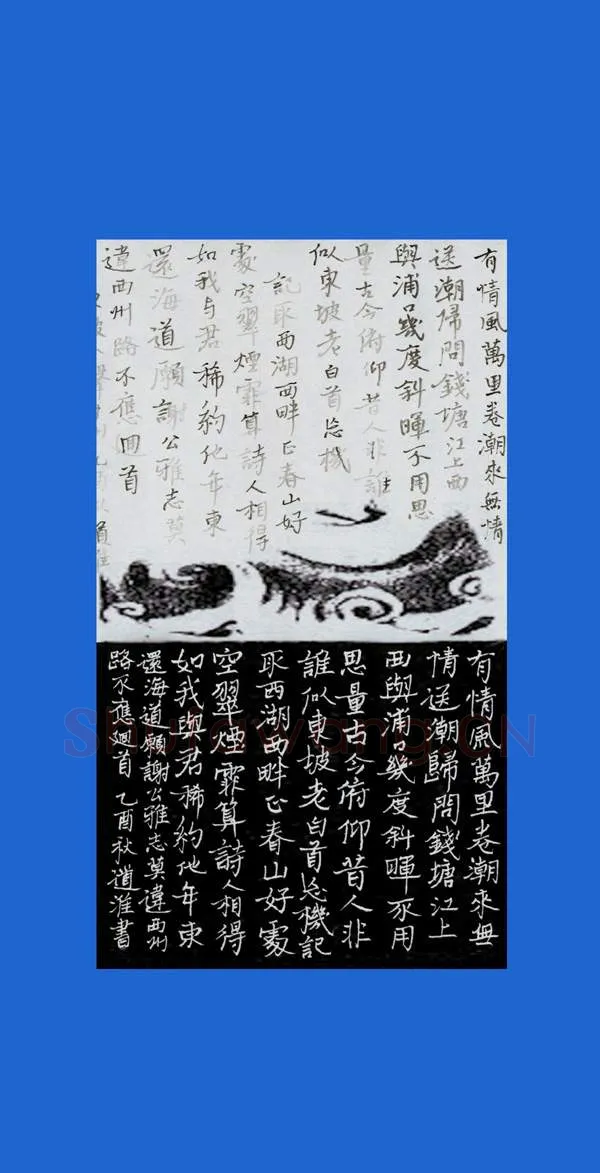 有情風萬里卷潮來無情
送潮帰問錢塘江上西
與浦口幾度斜暉不用思
量古今俯仰昔人非誰
似東坡老白首忘機
記取西湖西畔正春山好
處空翠煙霏算詩人相得
如我与君稀約他年東
還海道願謝公雅志莫
違西州路不應迴首
有情風萬里卷潮來無
情送潮歸問錢塘江上
西與浦口幾度斜暉不用
思量古今俯仰昔人非
誰似東坡老白首忘機記
取西湖西畔正春山好處
空翠煙霏算詩人相得
如我與君稀約他年東
還海道願謝公雅志莫違西州
路不應迴首 乙酉秋道淮書
Shufawang.CN